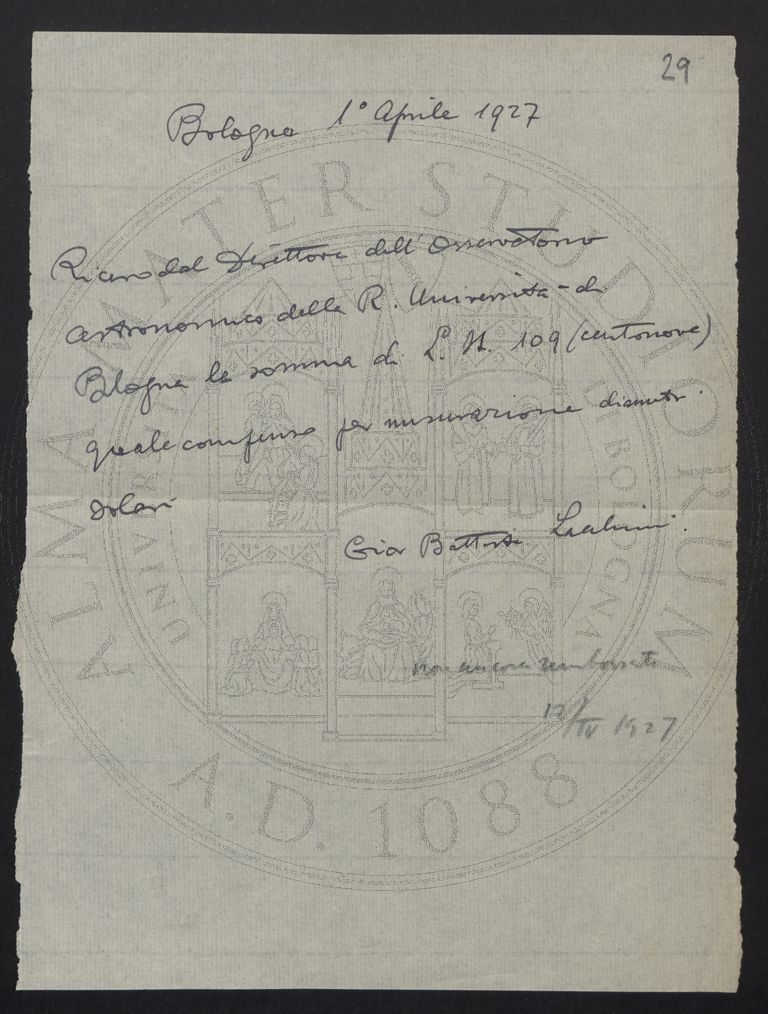 29
Bologna 1° Aprile 1927
Ricevo dal Direttore dell'Osservatorio
astronomico della R. Università di
Bologna la somma di L. It. 109 (centonove)
quale compenso per misurazione diametri
solari
Gio Battista Lacchini.
non ancora rimborsato
17/IV 1927
ALMA MATER STUDIORUM
A.D. 1088